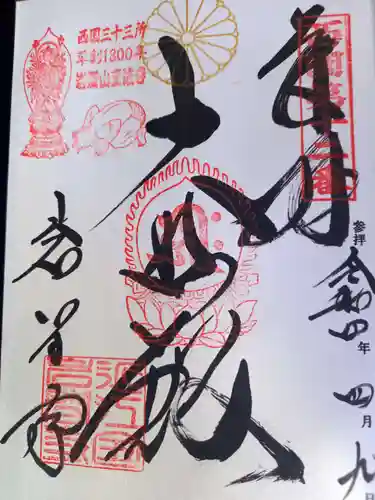 西国第十二番
奉拝
参拝 令和四年 四月九日
大悲殿
西国三十三所
草創1300年
岩間山正法寺
岩間寺